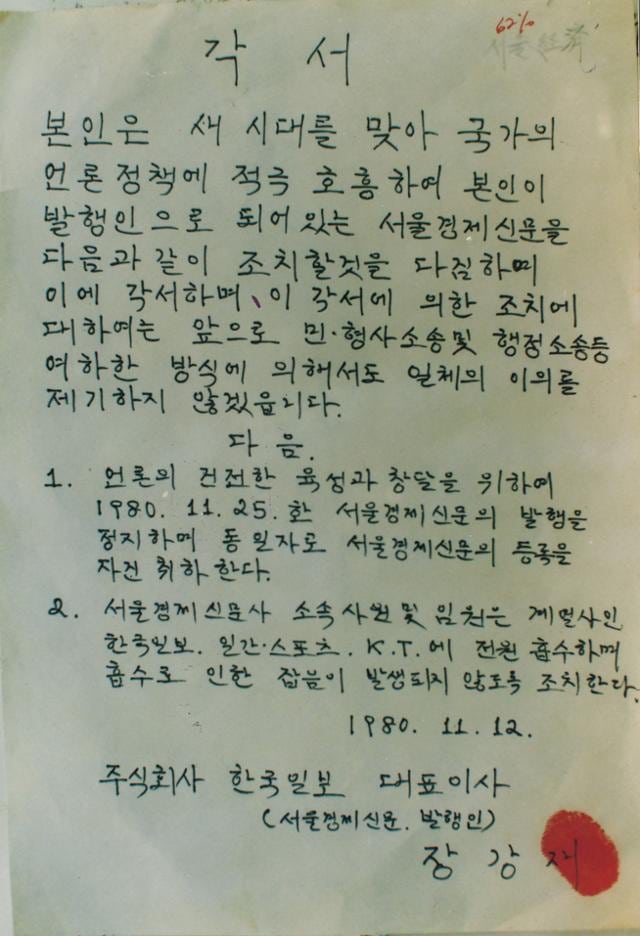 62%
서울 經濟
각 서
본인은 새 시대를 맞아 국가의
언론정책에 적극 호흥하여 본인이
발행인으로 되어있는 서울경제신문을
다음과 같이 조치할것을 다짐하며
이에 각서하며, 이 각서에 의한 조치에
대하여는 앞으로 민·형사소송및 행정소송등
여하한 방식에 의해서도 일체의 이의를
제기하지 않겠읍니다.
다 음.
1. 언론의 건전한 육성과 창달을 위하여
1980. 11. 25. 화 서울경제신문의 발행을
정지하며 동 일자로 서울경제신문의 등록을
자진 취하 한다.
2. 서울경제신문사 소속사원및 임원은 계열사인
한국일보. 일간·스포츠. K.T.에 전원 흡수하며
흡수로 인한 잡음이 발생되지 않도록 조치한다.
1980. 11. 12.
주식회사 한국일보 대표이사
(서울경제신문. 발행인)
장 강 재